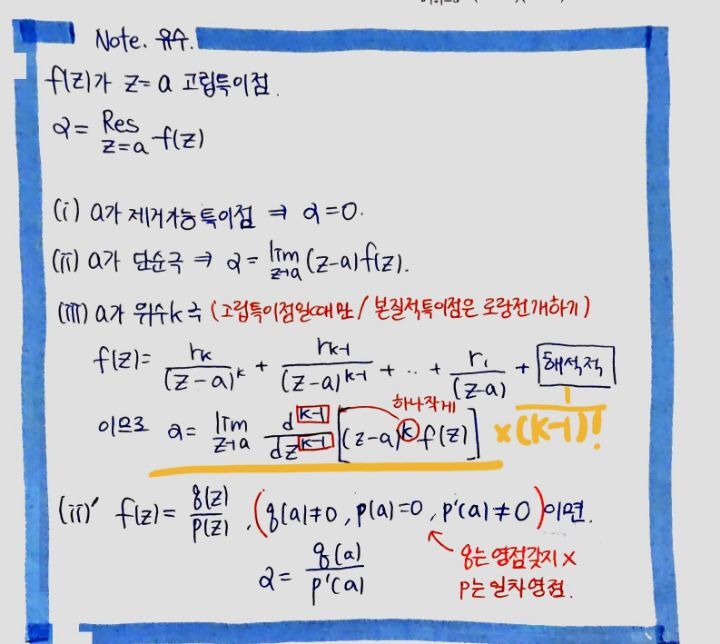 Note. 유수.
f(z)가 z=a 고립특이점.
α = Res_{z=a} f(z)
(i) a가 제거가능특이점 ⇒ α=0.
(ii) a가 단순극 ⇒ α = lim_{z→a} (z-a)f(z).
(iii) a가 위수k극 (고립특이점일때만 / 본질적특이점은 로랑전개하기)
f(z) = r_k/(z-a)^k + r_{k-1}/(z-a)^{k-1} + ‥ + r_1/(z-a) + 해석적
하나작게
이므로 α = lim_{z→a} d^{k-1}/dz^{k-1} [(z-a)^k f(z)] × 1/(k-1)!
(ii)′ f(z) = g(z)/p(z), (g(a)≠0, p(a)=0, p'(a)≠0)이면.
α = g(a)/p'(a)
g는 영점갖지 X
p는 일차영점.